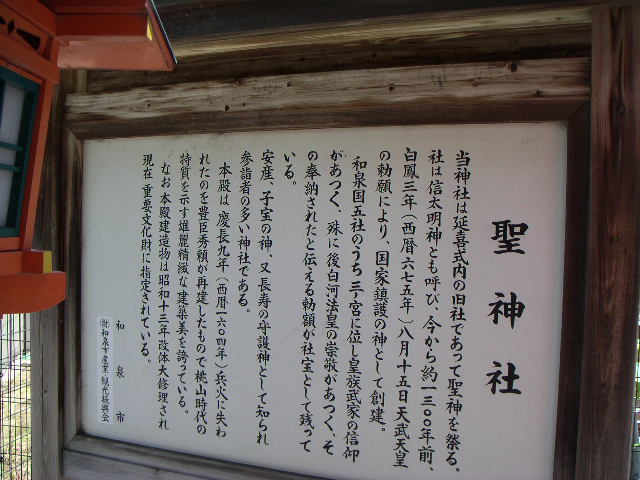 聖神社
当神社は延喜式内の旧社であって聖神を祭る。
社は信太明神とも呼び、今から約一三〇〇年前、
白鳳三年（西暦六七五年）八月十五日天武天皇
の勅願により、国家鎮護の神として創建。
和泉国五社のうち三ノ宮に位し皇族武家の信仰
があつく、殊に後白河法皇の崇敬があつく、そ
の奉納されたと伝える勅額が社宝として残って
いる。
安産、子宝の神、又長寿の守護神として知られ
参詣者の多い神社である。
本殿は慶長九年（西暦一六〇四年）兵火に失わ
れたのを豊臣秀頼が再建したもので桃山時代の
特質を示す雄麗精緻な建築美を誇っている。
なお本殿建造物は昭和十三年改体大修理され
現在重要文化財に指定されている。
和泉市
㈶和泉市産業観光振興会